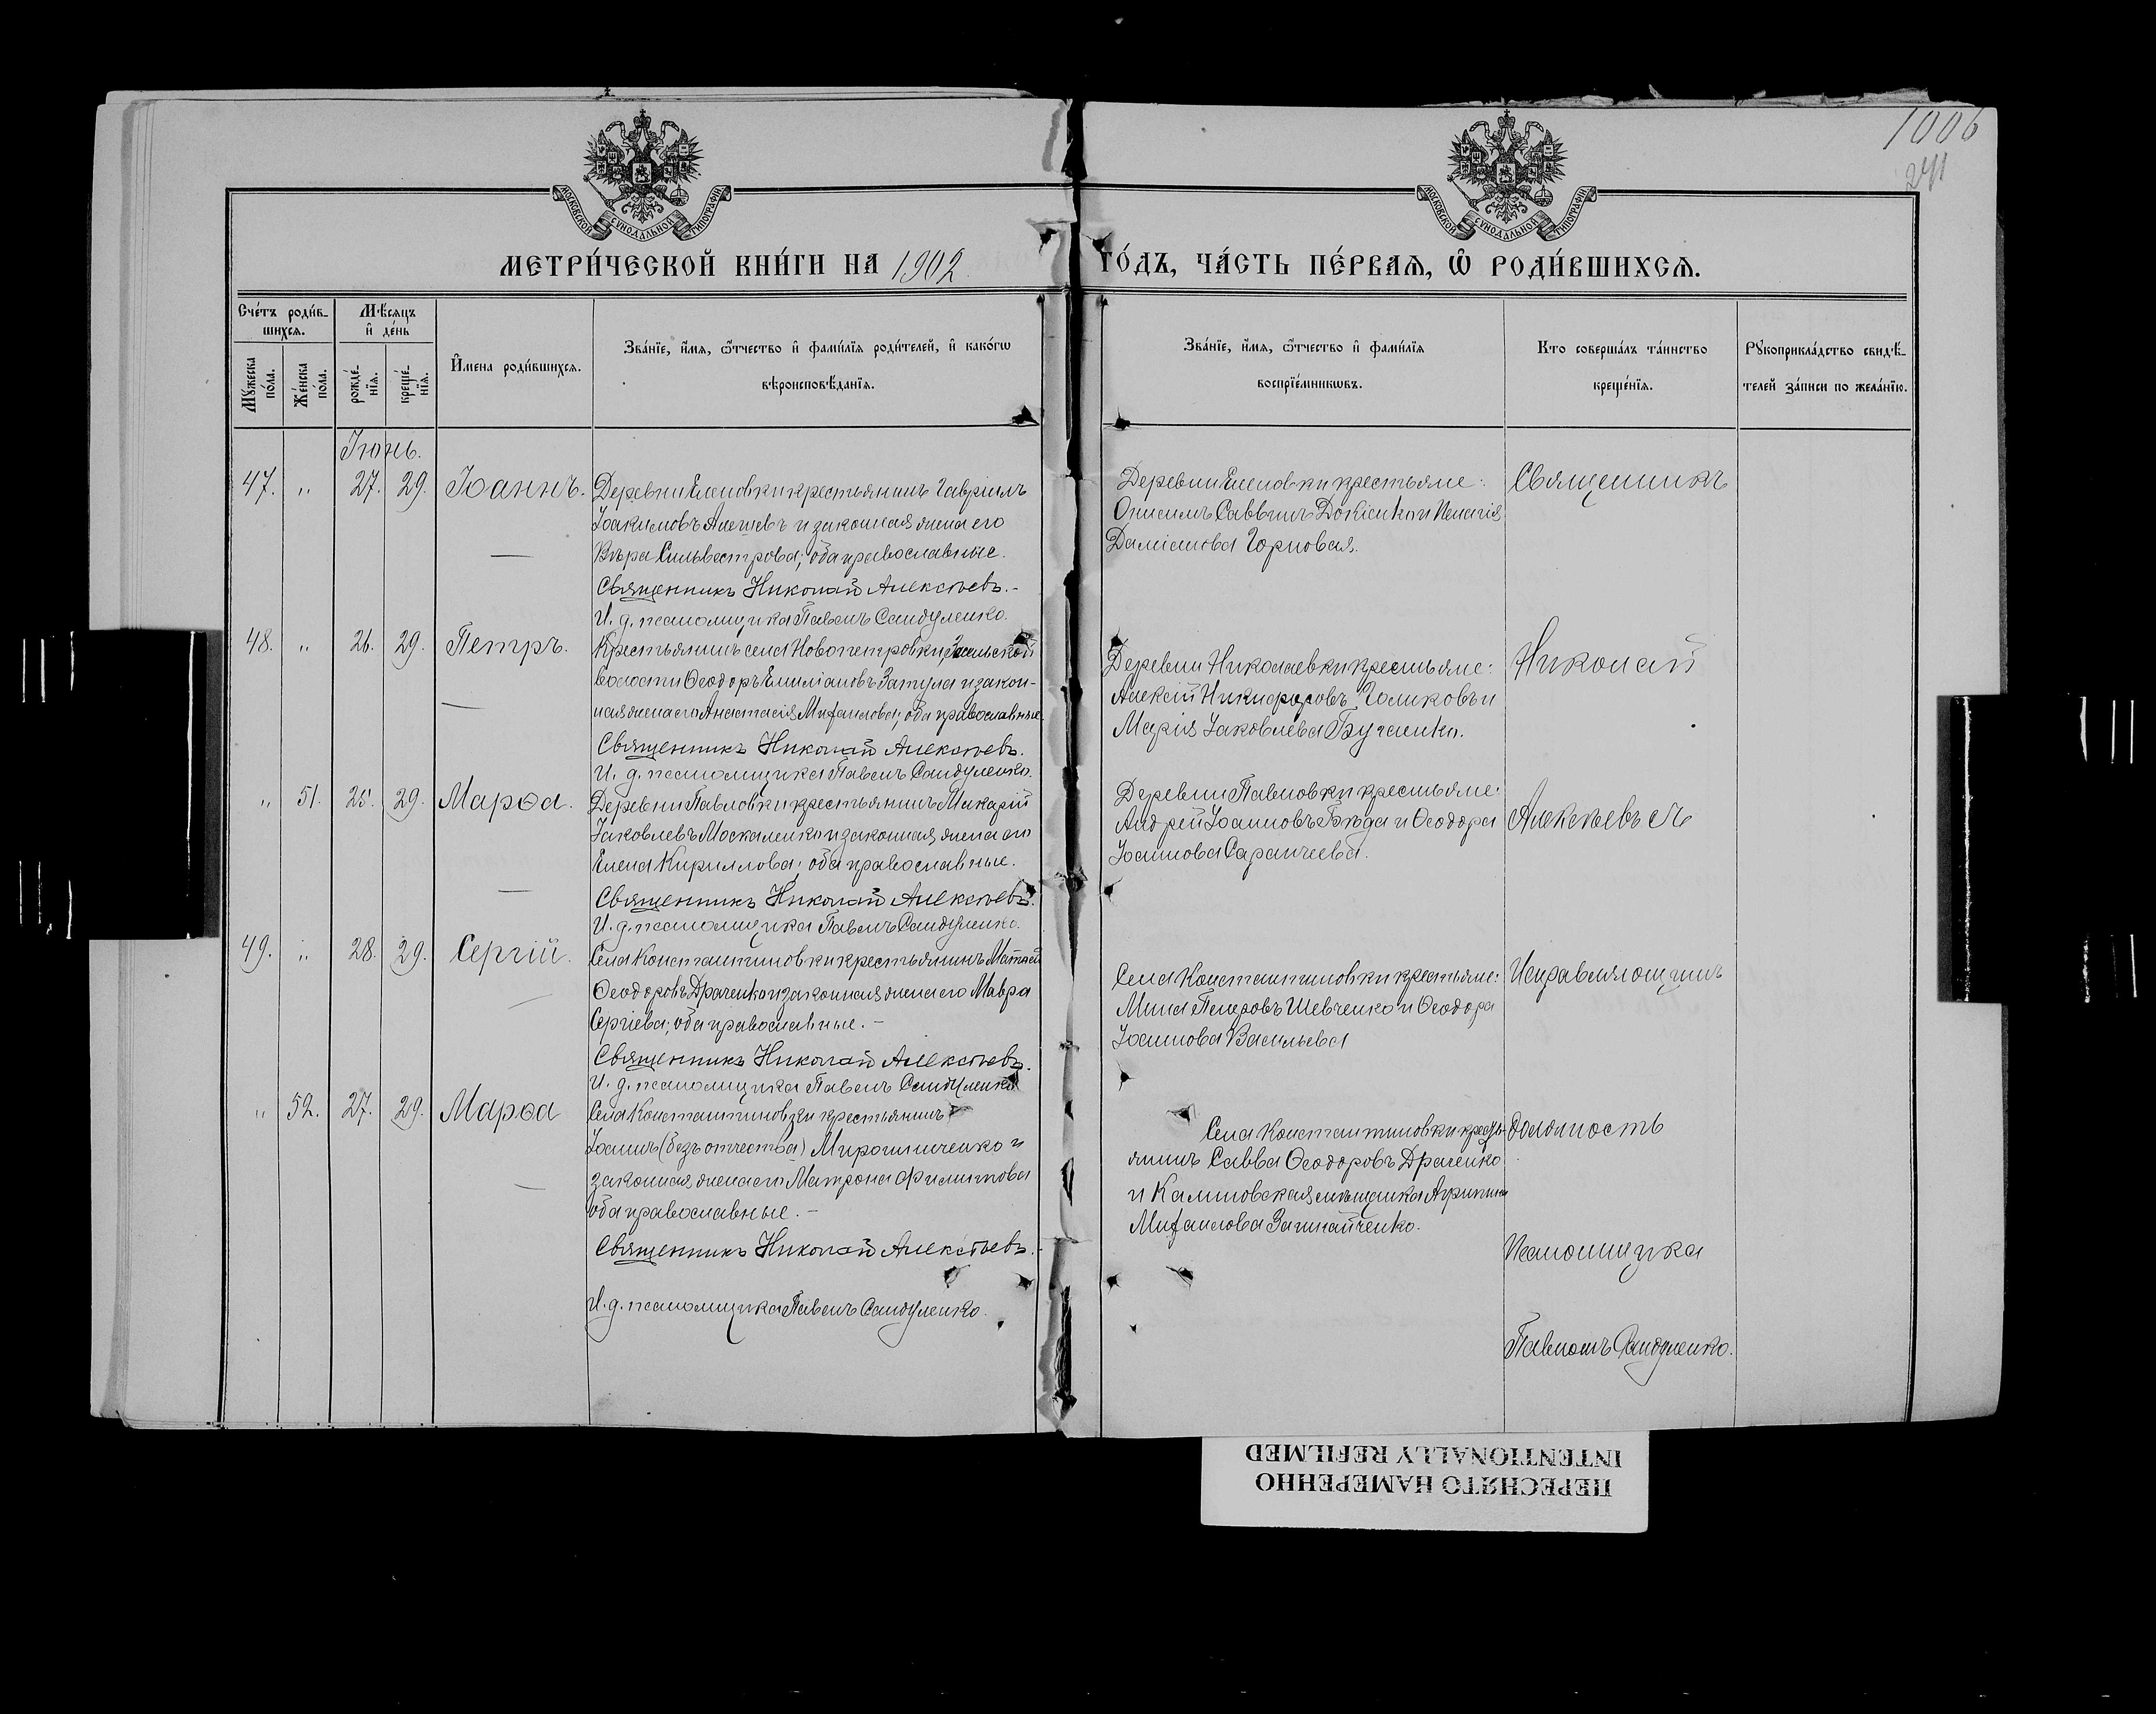 1006
241
МОСКОВСКОЙ СѴНОДАЛЬНОЙ ТИПОГРАФІИ
МОСКОВСКОЙ СѴНОДАЛЬНОЙ ТИПОГРАФІИ
МЕТРИ́ЧЕСКОЙ КНИ́ГИ НА 1902
ГО́ДЪ, ЧА́СТЬ ПЕ́РВАѦ, Ѽ РОДИ́ВШИХСѦ.
Сче́тъ роди́в-
шихсѧ.
Мꙋ́жеска по́ла.
Же́нска по́ла.
Мѣ́сѧцъ
и҆ де́нь
рожде́-
нїѧ.
креще́-
нїѧ.
И҆мена роди́вшихсѧ.
Зва́нїе, и҆́мѧ, ѻ҆́тчество и҆ фами́лїѧ роди́телей, и҆ како́гѡ
вѣроисповѣ́данїѧ.
Зва́нїе, и҆́мѧ, ѻ҆́тчество и҆ фами́лїѧ
воспрїе́мникѡвъ.
Кто соверша́лъ та́инство
креще́нїѧ.
Рꙋкоприкла́дство свидѣ́-
телей за́писи по жела́нїю.
Іюнь.
47. " 27. 29. Іоаннъ.
Деревни Еленовки крестьянинъ Гавріилъ
Іоакимовъ и законная жена его
Вѣра Сильвестрова; оба православные.
Священникъ Николай Алексѣевъ.-
И. д. псаломщика Павелъ Сандуленко.
Деревни Еленовки крестьяне:
Онисимъ Саввинъ и
Даміанова Горловая.
Священникъ
48. " 26. 29. Петръ.
Крестьянинъ села Новопетровки,
волости Ѳеодоръ Емиліановъ Затула и закон-
ная жена его Анастасія Михаилова; оба православные.
Священникъ Николай Алексѣевъ.
И. д. псаломщика Павелъ Сандуленко.
Деревни Николаевки крестьяне:
Алексій Никифоровъ Голиковъ и
Марія Іаковлева
Николай
" 51. 25. 29. Марѳа.
Деревни Павловки крестьянинъ Макарій
Іаковлевъ Москаленко и законная жена его
Елена Кириллова; оба православные.
Священникъ Николай Алексѣевъ.
И. д. псаломщика Павелъ Сандуленко.
Деревни Павловки крестьяне:
Андрей Іоанновъ Бѣда и Ѳеодора
Іоаннова Саранчеева.
Алексѣевъ съ
49. " 28. 29. Сергій.
Села Константиновки крестьянинъ Матѳей
Ѳеодоровъ Драченко и законная жена его Мавра
Сергіева; оба православные. -
Священникъ Николай Алексѣевъ.
И. д. псаломщика Павелъ Сандуленко
Села Константиновки крестьяне:
Мина Петровъ Шевченко и Ѳеодора
Іоаннова Васильева
Исправляющимъ
" 52. 27. 29. Марѳа
Села Константиновки крестьянинъ
Іоаннъ (безъ отчества) Мирошниченко и
законная жена его Матрона Филиппова
оба православные. -
Священникъ Николай Алексѣевъ.
И. д. псаломщика Павелъ Сандуленко.
Села Константиновки кресть-
янинъ Савва Ѳеодоровъ Драченко
и Калиновская мѣщанка Агрипина
Михаилова
должность
Псаломщика
Павломъ Сандуленко.
ПЕРЕСНЯТО НАМЕРЕННО
INTENTIONALLY REFILMED